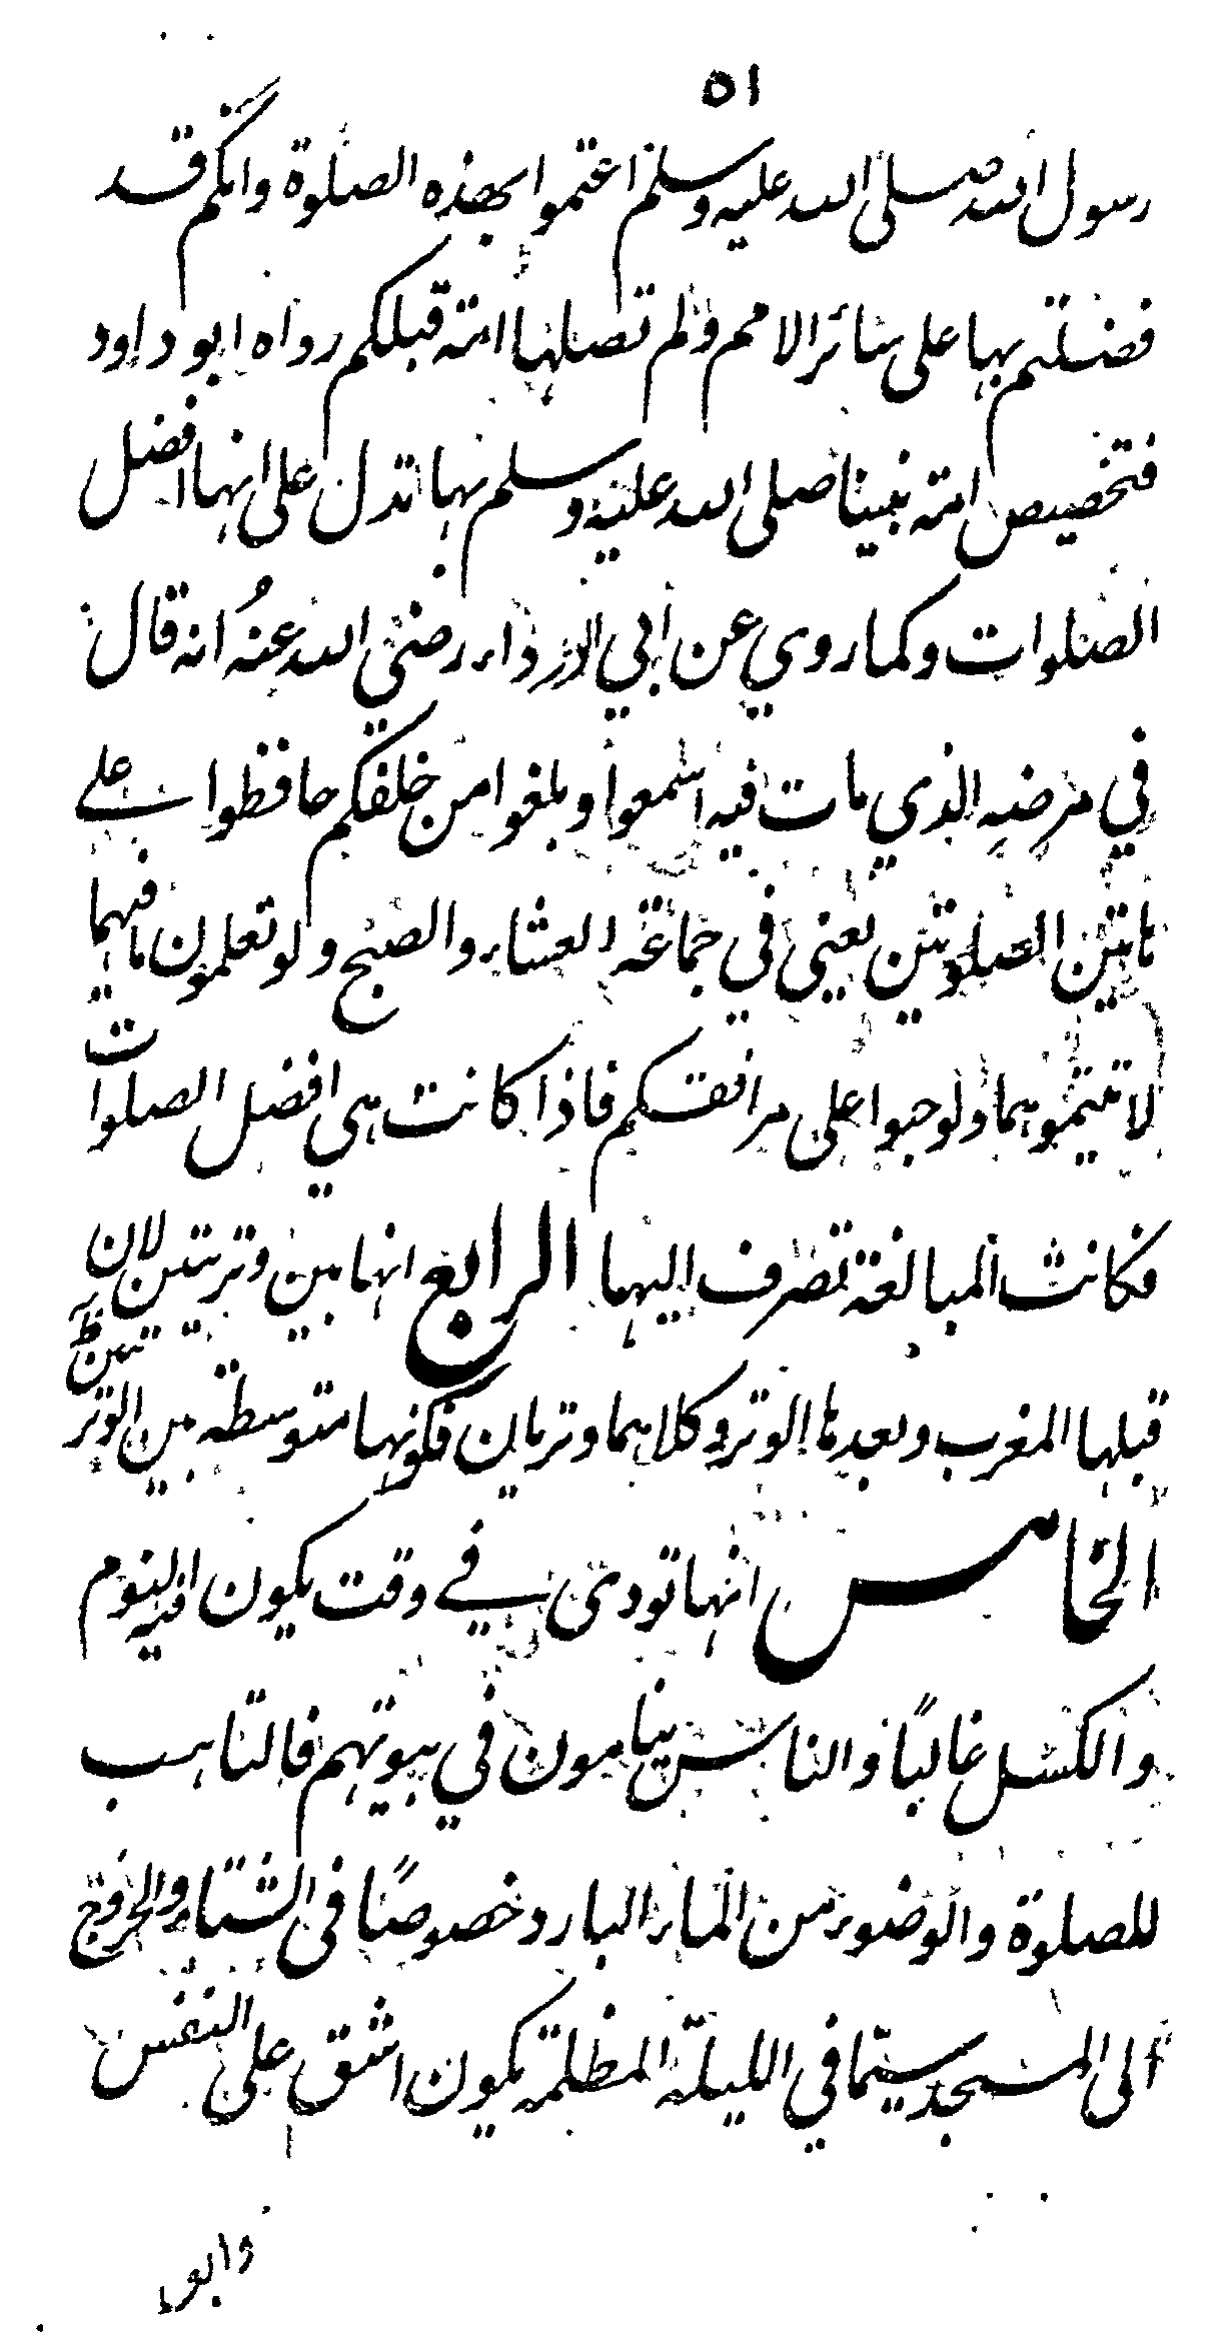 ٥١
رسول الله صلى الله عليه وسلم اعتموا بهذه الصلوة وانكم قد
فضلتم بها على سائر الامم ولم تصلها امة قبلكم رواه ابو داود
فتخصيص امة نبينا صلى الله عليه وسلم بها تدل على انها افضل
الصلوات وكما روي عن ابي الدرداء رضي الله عنه انه قال
في مرضه الذي مات فيه اسمعوا وبلغوا من خلفكم حافظوا على
هاتين الصلوتين يعني في جماعة العشاء والصبح ولو تعلمون ما فيهما
لاتيتموهما ولو حبوا على مرافقكم فاذا كانت هي افضل الصلوات
فكانت المبالغة تصرف اليها الرابع انها بين وتريتين لان
قبلها المغرب وبعدها الوتر وكلاهما وتريان فكونها متوسطة بين الوتر
الخامس انها تودى في وقت يكون فيه النوم
والكسل غالبًا والناس ينامون في بيوتهم فالتاهب
للصلوة والوضوء من الماء البارد خصوصًا في الشتاء والخروج
الى المسجد سيما في الليلة المظلمة يكون اشق على النفس
وابو